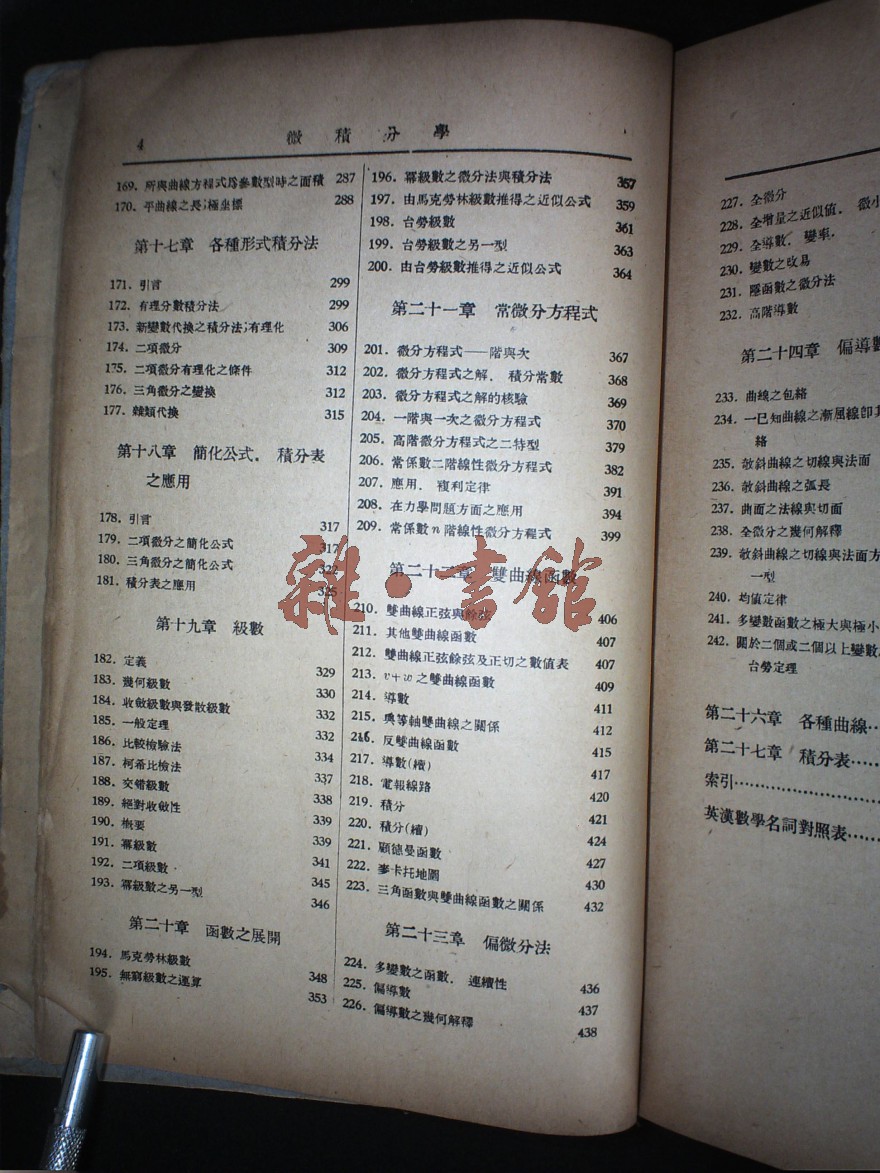 4
微積分學
169. 所與曲線方程式爲參數型時之面積 287
170. 平曲線之長;極坐標 288
第十七章 各種形式積分法
171. 引言 299
172. 有理分數積分法 299
173. 新變數代換之積分法;有理化 306
174. 二項微分 309
175. 二項微分有理化之條件 312
176. 三角微分之變換 312
177. 雜類代換 315
第十八章 簡化公式, 積分表
之應用
178. 引言 317
179. 二項微分之簡化公式 317
180. 三角微分之簡化公式 322
181. 積分表之應用 325
第十九章 級數
182. 定義 329
183. 幾何級數 330
184. 收斂級數與發散級數 332
185. 一般定理 332
186. 比較檢驗法 334
187. 柯希比檢法 337
188. 交錯級數 338
189. 絕對收斂性 339
190. 概要 339
191. 冪級數 341
192. 二項級數 345
193. 冪級數之另一型 346
第二十章 函數之展開
194. 馬克勞林級數 348
195. 無窮級數之運算 353
196. 冪級數之微分法與積分法 357
197. 由馬克勞林級數推得之近似公式 359
198. 台勞級數 361
199. 台勞級數之另一型 363
200. 由台勞級數推得之近似公式 364
第二十一章 常微分方程式
201. 微分方程式——階與次 367
202. 微分方程式之解, 積分常數 368
203. 微分方程式之解的核驗 369
204. 一階與一次之微分方程式 370
205. 高階微分方程式之二特型 379
206. 常係數二階線性微分方程式 382
207. 應用, 複利定律 391
208. 在力學問題方面之應用 394
209. 常係數n階線性微分方程式 399
第二十二章 雙曲線函數
210. 雙曲線正弦與餘弦 406
211. 其他雙曲線函數 407
212. 雙曲線正弦餘弦及正切之數值表 407
213. v+w之雙曲線函數 409
214. 導數 411
215. 與等軸雙曲線之關係 412
216. 反雙曲線函數 415
217. 導數(續) 417
218. 電報線路 420
219. 積分 421
220. 積分(續) 424
221. 顧德曼函數 427
222. 麥卡托地圖 430
223. 三角函數與雙曲線函數之關係 432
第二十三章 偏微分法
224. 多變數之函數, 連續性 436
225. 偏導數 437
226. 偏導數之幾何解釋 438
雜·書館
227. 全微分
228. 全增量之近似值, 微小
229. 全導數, 變率,
230. 變數之改易
231. 隱函數之微分法
232. 高階導數
第二十四章 偏導數
233. 曲線之包絡
234. 一已知曲線之漸屈線卽其
絡
235. 欹斜曲線之切線與法面
236. 欹斜曲線之弧長
237. 曲面之法線與切面
238. 全微分之幾何解釋
239. 欹斜曲線之切線與法面方
一型
240. 均值定律
241. 多變數函數之極大與極小
242. 關於二個或二個以上變數
台勞定理
第二十六章 各種曲線
第二十七章 積分表
索引
英漢數學名詞對照表